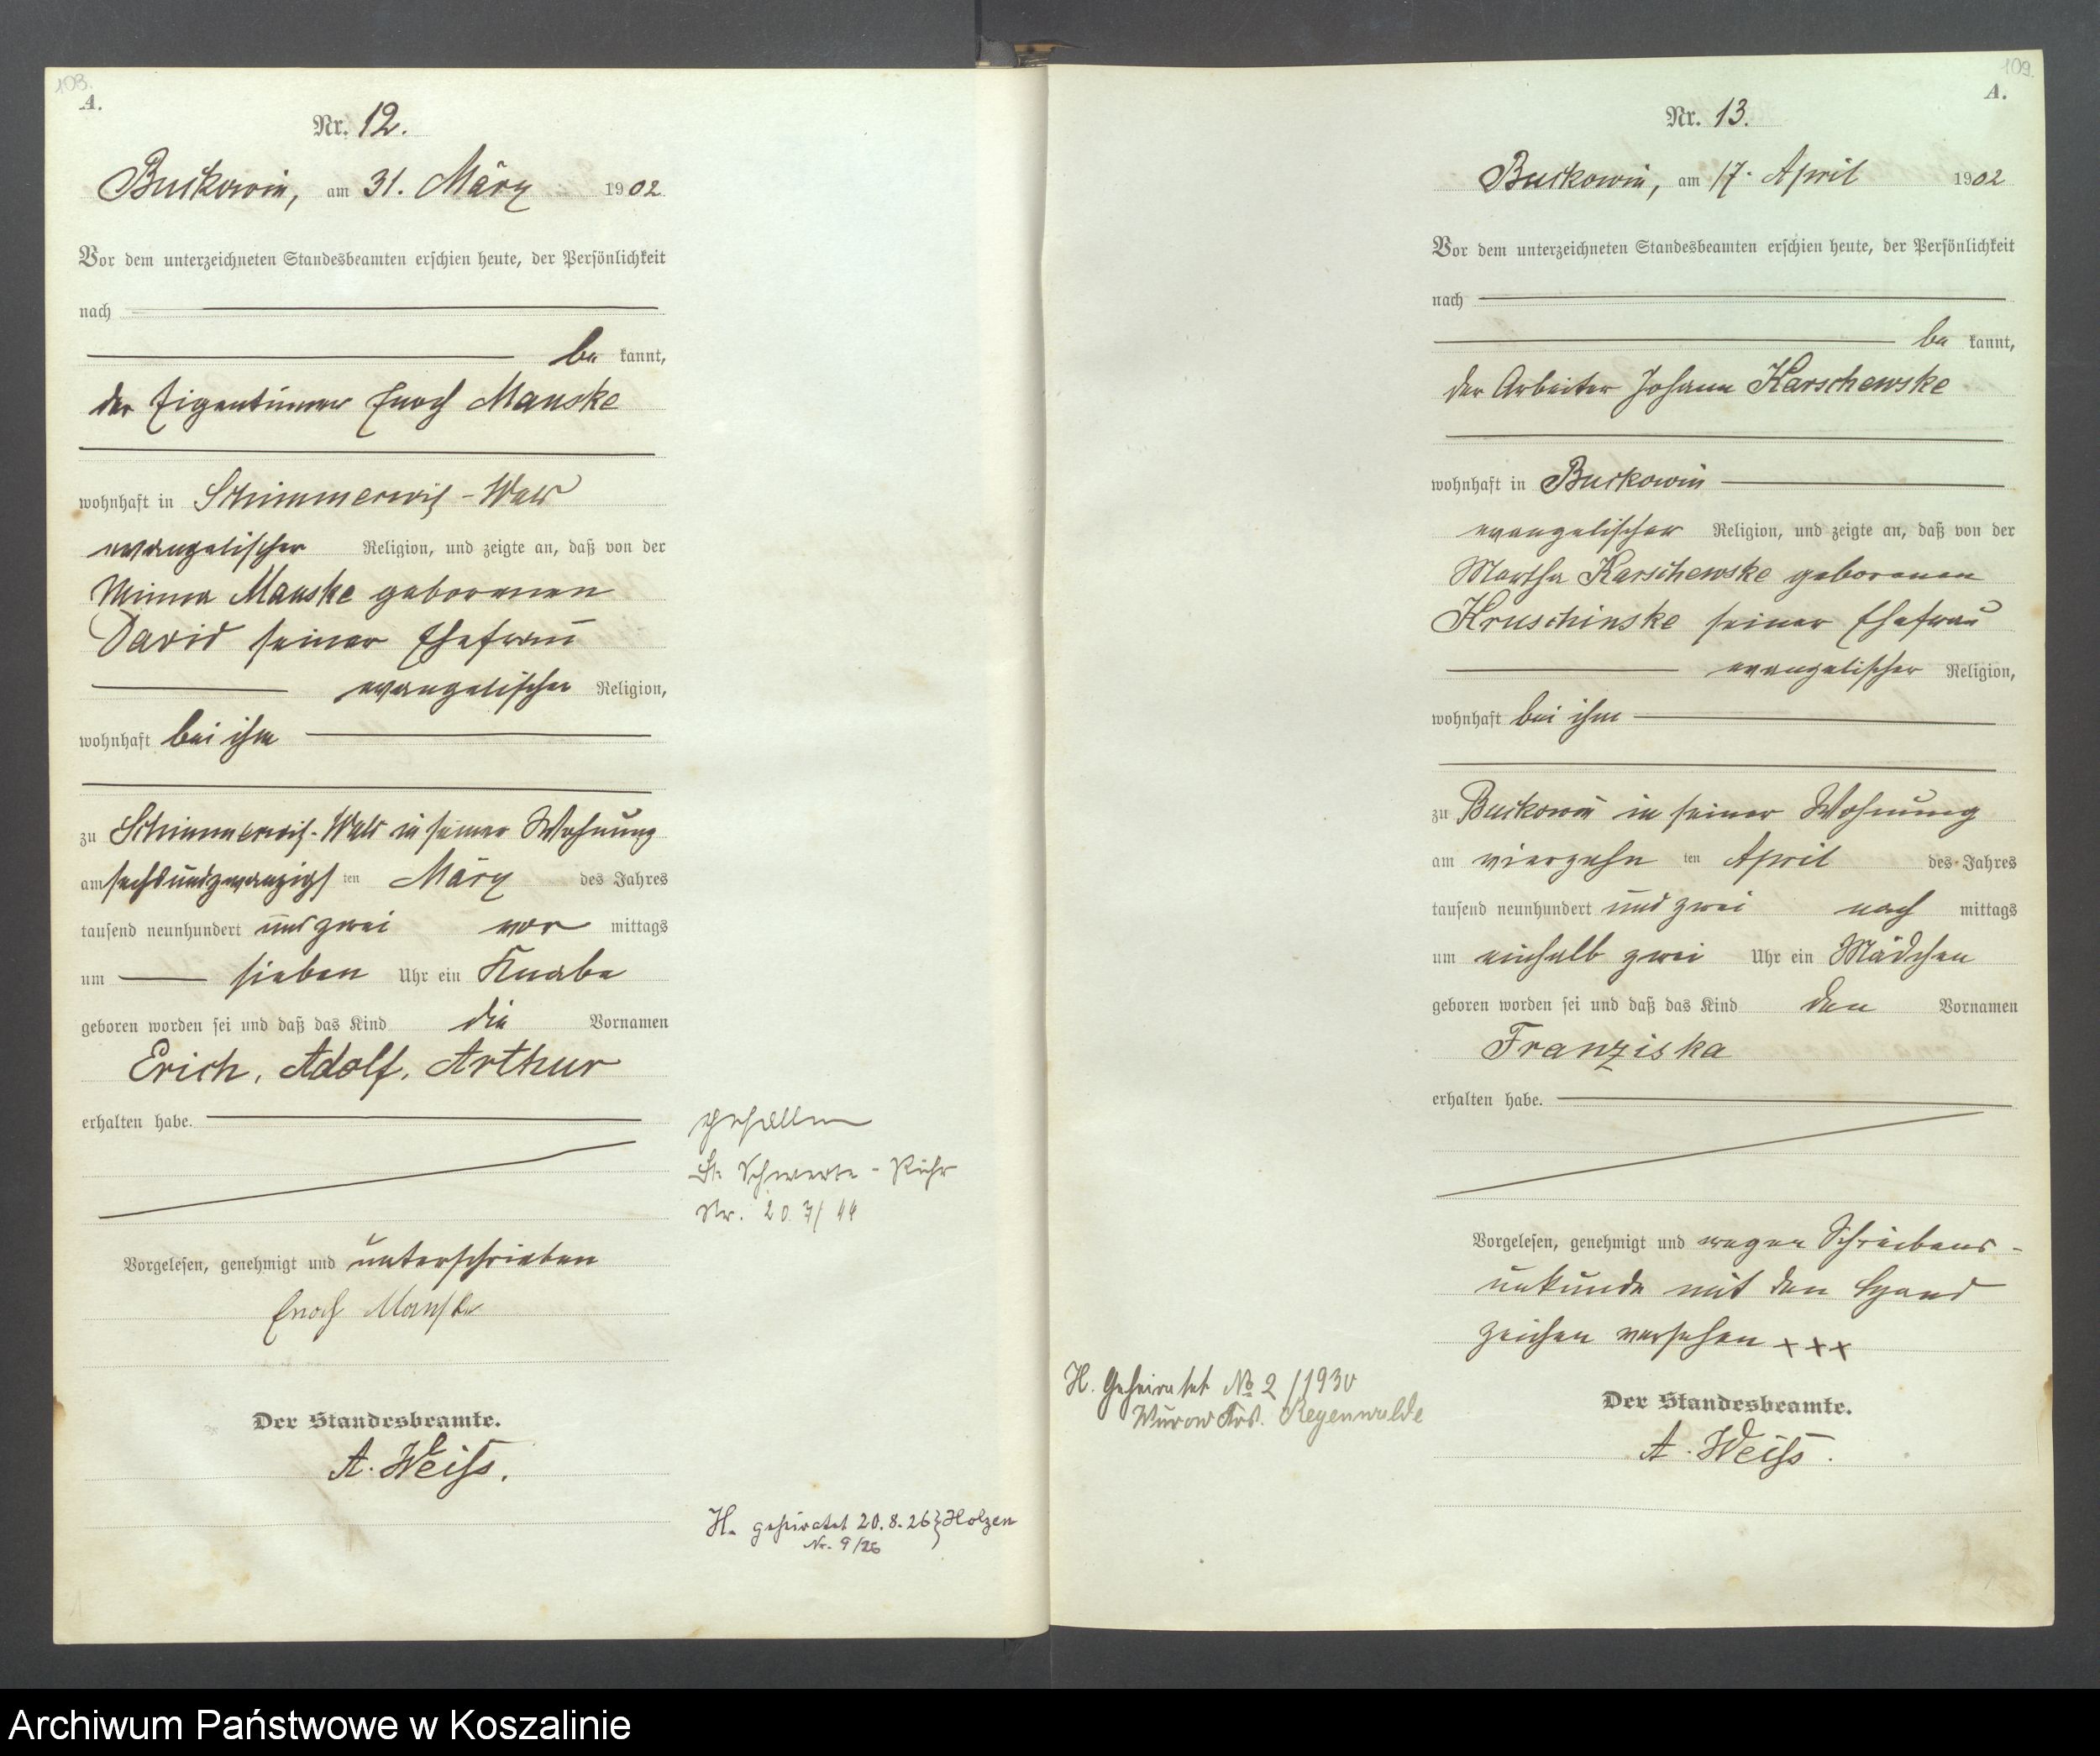 103.
A.
Nr. 12.
Buckowin, am 31. März 1902
Vor dem unterzeichneten Standesbeamten erschien heute, der Persönlichkeit
nach
be kannt,
der Eigentümer Enoch Manske
wohnhaft in Schimmerwitz-Wald
evangelischer Religion, und zeigte an, daß von der
Minna Manske geborenen
David seiner Ehefrau
evangelischer Religion,
wohnhaft bei ihm
zu Schimmerwitz-Wald in seiner Wohnung
am sechsundzwanzigsten März des Jahres
tausend neunhundert und zwei vor mittags
um sieben Uhr ein Knabe
geboren worden sei und daß das Kind die Vornamen
Erich, Adolf, Arthur
erhalten habe.
gefallen
St. Schwerte-Ruhr
Nr. 207/44
Vorgelesen, genehmigt und unterschrieben
Enoch Manske
Der Standesbeamte.
A. Weiß.
H. geheiratet 20.8.26 } Holzen
Nr. 9/26
109.
A.
Nr. 13.
Buckowin, am 17. April 1902
Vor dem unterzeichneten Standesbeamten erschien heute, der Persönlichkeit
nach
be kannt,
der Arbeiter Johann Karschewske
wohnhaft in Buckowin
evangelischer Religion, und zeigte an, daß von der
Martha Karschewske geborenen
Kruschinske seiner Ehefrau
evangelischer Religion,
wohnhaft bei ihm
zu Buckowin in seiner Wohnung
am vierzehn ten April des Jahres
tausend neunhundert und zwei nach mittags
um einhalb zwei Uhr ein Mädchen
geboren worden sei und daß das Kind den Vornamen
Franziska
erhalten habe.
Vorgelesen, genehmigt und wegen Schreibens-
unkunde mit den Hand
zeichen versehen xxx
H. Geheiratet No 2/1930
Wurow Krs. Regenwalde
Der Standesbeamte.
A. Weiß.
Archiwum Państwowe w Koszalinie